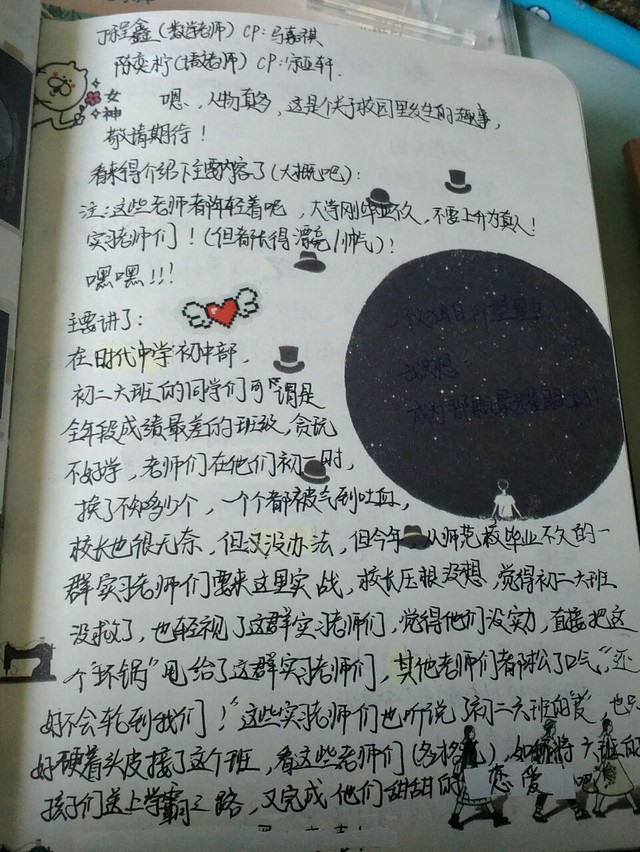 丁程鑫（数学老师）CP：马嘉祺
陈奕柠（语老师）CP：宋亚轩.
女神
嗯、，人物真多，这是个关于校园里发生的趣事，
敬请期待！
看来得介绍下主要内容了（大概吧）：
注：这些老师都年轻着呢，大学刚毕业不久，不要上升为真人！
实习老师们！（但都长得漂亮/帅气）！
嘿嘿！！！
主要讲了：
在时代中学初中部，
初二六班的同学们可谓是
全年段成绩最差的班级，贪玩
不好学，老师们在他们初一时，
换了不知多少个，一个个都被气到吐血，
校长也很无奈，但又没办法，但今年，从师范校毕业不久的一
群实习老师们要来这里实战，校长压根没想，觉得初二六班
没救了，也轻视了这群实习老师们，觉得他们没实力，直接把这
个“坏锅”甩给了这群实习老师们，其他老师们都松了口气，“还
好不会轮到我们！”这些实习老师们也听说了初二六班的，也只
好硬着头皮接了这个班，看这些老师们（各格），如何将六班的
孩子们送上学霸之路，又完成他们甜甜的恋爱吧